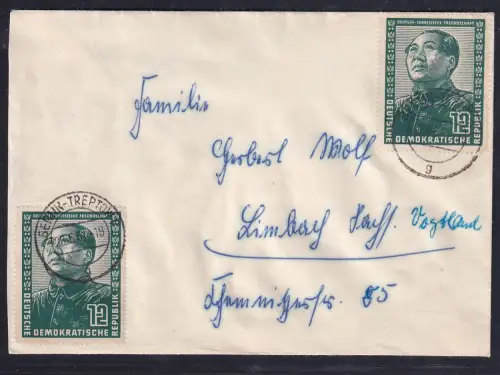 DEUTSCH-CHINESISCHE FREUNDSCHAFT
12
DEUTSCHE
DEMOKRATISCHE
REPUBLIK
g
Familie
Herbert Wolf
Limbach Sachs. Vogtland
Chemnitzerstr. 85
BERLIN-TREPTOW
DEUTSCH-CHINESISCHE FREUNDSCHAFT
12
DEUTSCHE
DEMOKRATISCHE
REPUBLIK